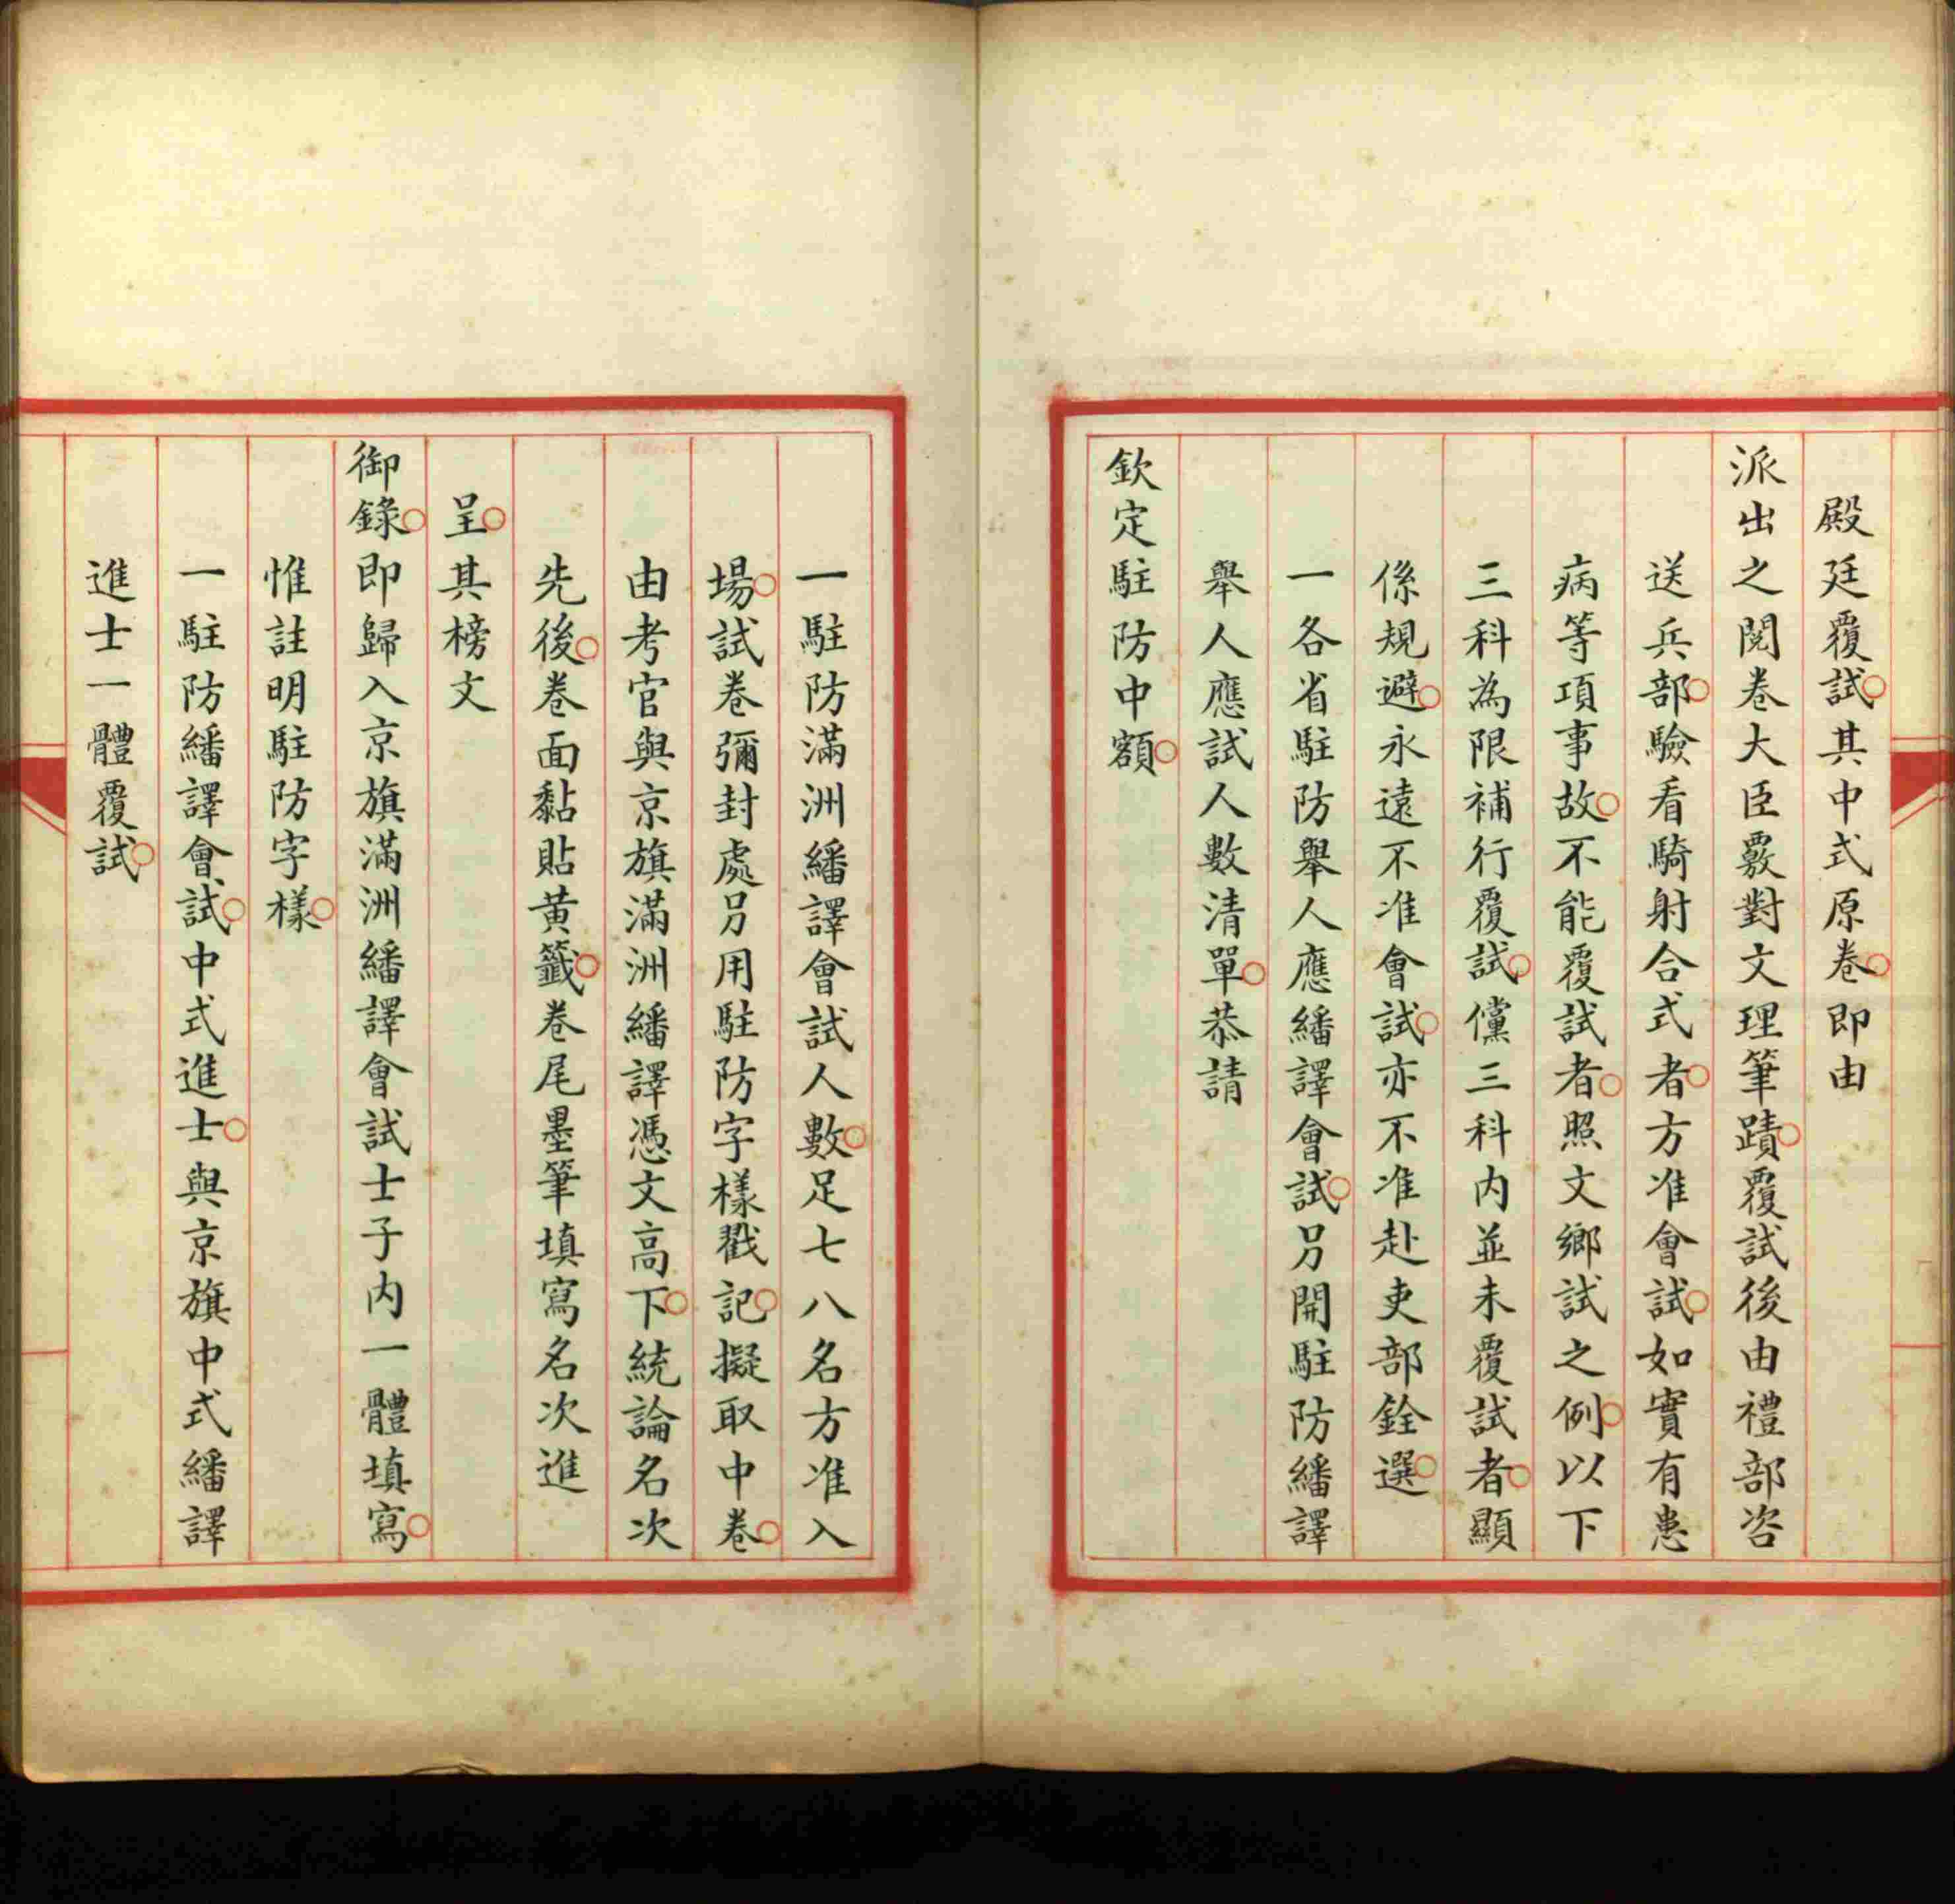 殿廷覆試其中式原卷即由
派出之閱卷大臣覈對文理筆蹟覆試後由禮部咨
送兵部驗看騎射合式者方准會試如實有患
病等項事故不能覆試者照文鄉試之例以下
三科為限補行覆試儻三科内並未覆試者顯
係規避永遠不准會試亦不准赴吏部銓選
一各省駐防舉人應繙譯會試另開駐防繙譯
舉人應試人數清單恭請
欽定駐防中額
一駐防滿洲繙譯會試人數足七八名方准入
場試卷彌封處另用駐防字樣戳記擬取中卷
由考官與京旗滿洲繙譯憑文高下統論名次
先後卷面黏貼黃籤卷尾墨筆填寫名次進
呈其榜文
御錄即歸入京旗滿洲繙譯會試士子内一體填寫
惟註明駐防字樣
一駐防繙譯會試中式進士與京旗中式繙譯
進士一體覆試